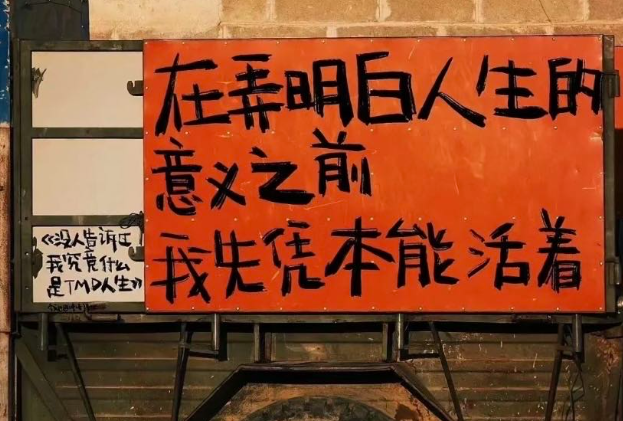 在弄明白人生的
意义之前
我先凭本能活着
《没人告诉过
我究竟什么
是TMD人生》